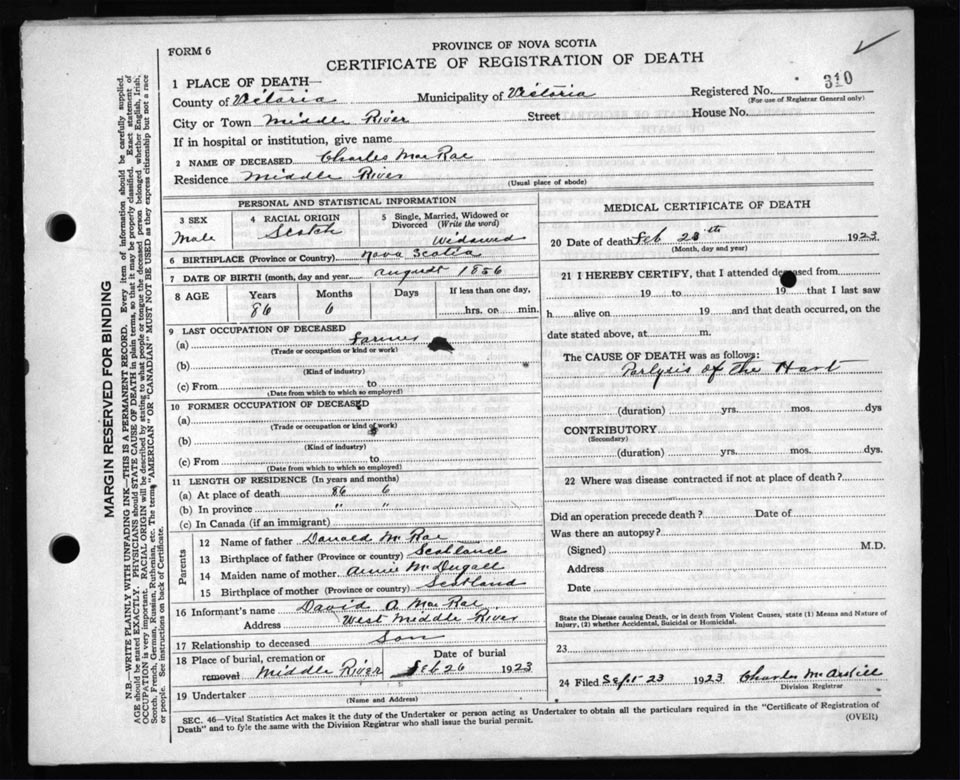 FORM 6
PROVINCE OF NOVA SCOTIA
CERTIFICATE OF REGISTRATION OF DEATH
1 PLACE OF DEATH—
Registered No. 310
(For use of Registrar General only)
County of Victoria Municipality of Victoria
City or Town Middle River Street House No.
If in hospital or institution, give name
2 NAME OF DECEASED Charles MacRae
Residence Middle River
(Usual place of abode)
PERSONAL AND STATISTICAL INFORMATION
3 SEX
Male
4 RACIAL ORIGIN
Scotch
5 Single, Married, Widowed or
Divorced (Write the word)
Widowed
6 BIRTHPLACE (Province or Country) Nova Scotia
7 DATE OF BIRTH (month, day and year) August 1836
8 AGE
Years
86
Months
6
Days
If less than one day,
hrs. or min.
9 LAST OCCUPATION OF DECEASED
(a) Farmer
(Trade or occupation or kind or work)
(b)
(Kind of industry)
(c) From to
(Date from which to which so employed)
10 FORMER OCCUPATION OF DECEASED
(a)
(Trade or occupation or kind of work)
(b)
(Kind of industry)
(c) From to
(Date from which to which so employed)
11 LENGTH OF RESIDENCE (In years and months)
(a) At place of death 86 6
(b) In province " "
(c) In Canada (if an immigrant)
Parents
12 Name of father Donald McRae
13 Birthplace of father (Province or country) Scotland
14 Maiden name of mother Annie McDugall
15 Birthplace of mother (Province or country) Scotland
16 Informant's name David A. MacRae
Address West Middle River
17 Relationship to deceased Son
18 Place of burial, cremation or Date of burial
removal Middle River Feb 26 1923
19 Undertaker
(Name and Address)
MEDICAL CERTIFICATE OF DEATH
20 Date of death Feb 23th 1923
(Month, day and year)
21 I HEREBY CERTIFY, that I attended deceased from
19 to 19 that I last saw
h alive on 19 and that death occurred, on the
date stated above, at m.
The CAUSE OF DEATH was as follows:
Perlysis of the Hart
(duration) yrs. mos. dys
CONTRIBUTORY
(Secondary)
(duration) yrs. mos. dys.
22 Where was disease contracted if not at place of death?
Did an operation precede death? Date of
Was there an autopsy?
(Signed) M.D.
Address
Date
State the Disease causing Death, or in death from Violent Causes, state (1) Means and Nature of
Injury, (2) whether Accidental, Suicidal or Homicidal.
23
24 Filed Sept 23 1923 Charles McAskill
Division Registrar
SEC. 46—Vital Statistics Act makes it the duty of the Undertaker or person acting as Undertaker to obtain all the particulars required in the "Certificate of Registration of
Death" and to fyle the same with the Division Registrar who shall issue the burial permit.
(OVER)
MARGIN RESERVED FOR BINDING
N.B.—WRITE PLAINLY WITH UNFADING INK—THIS IS A PERMANENT RECORD. Every item of information should be carefully supplied.
AGE should be stated EXACTLY. PHYSICIANS should STATE CAUSE OF DEATH in plain terms, so that it may be properly classified. Exact statement of
OCCUPATION is very important. RACIAL ORIGIN will be described by stating to what people or tongue the deceased person belonged whether English, Irish,
Scotch, French, German, Russian, Ruthenian, etc. The terms "AMERICAN" OR "CANADIAN" MUST NOT BE USED as they express citizenship but not a race
or people. See instructions on back of Certificate.